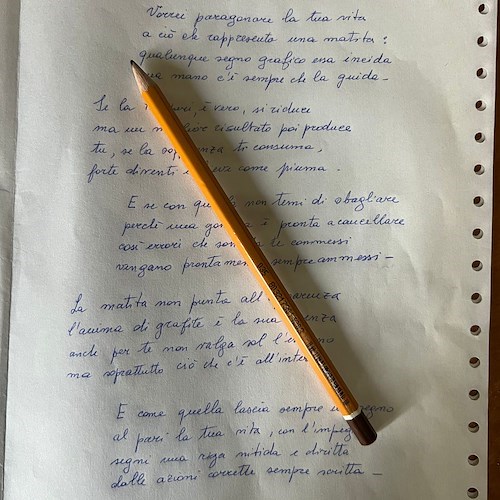 Vorrei paragonare la tua vita
a ciò che rappresenta una matita:
qualunque segno grafico essa incida
una mano c'è sempre che la guida –
Se la è vero, si riduce
ma un risultato poi produce
tu, se la ti consuma,
forte diventi come piuma.
E se con non temi di sbagliare
perché una è pronta a cancellare
così errori che le commessi
vangano sempre ammessi –
La matita non punta
l'anima di grafite è la sua
anche per te non valga sol
ma soprattutto ciò che c'è
E come quella lascia sempre
al pari la tua vita, con
segni una riga nitida e diritta
dalle azioni corrette sempre scritta –